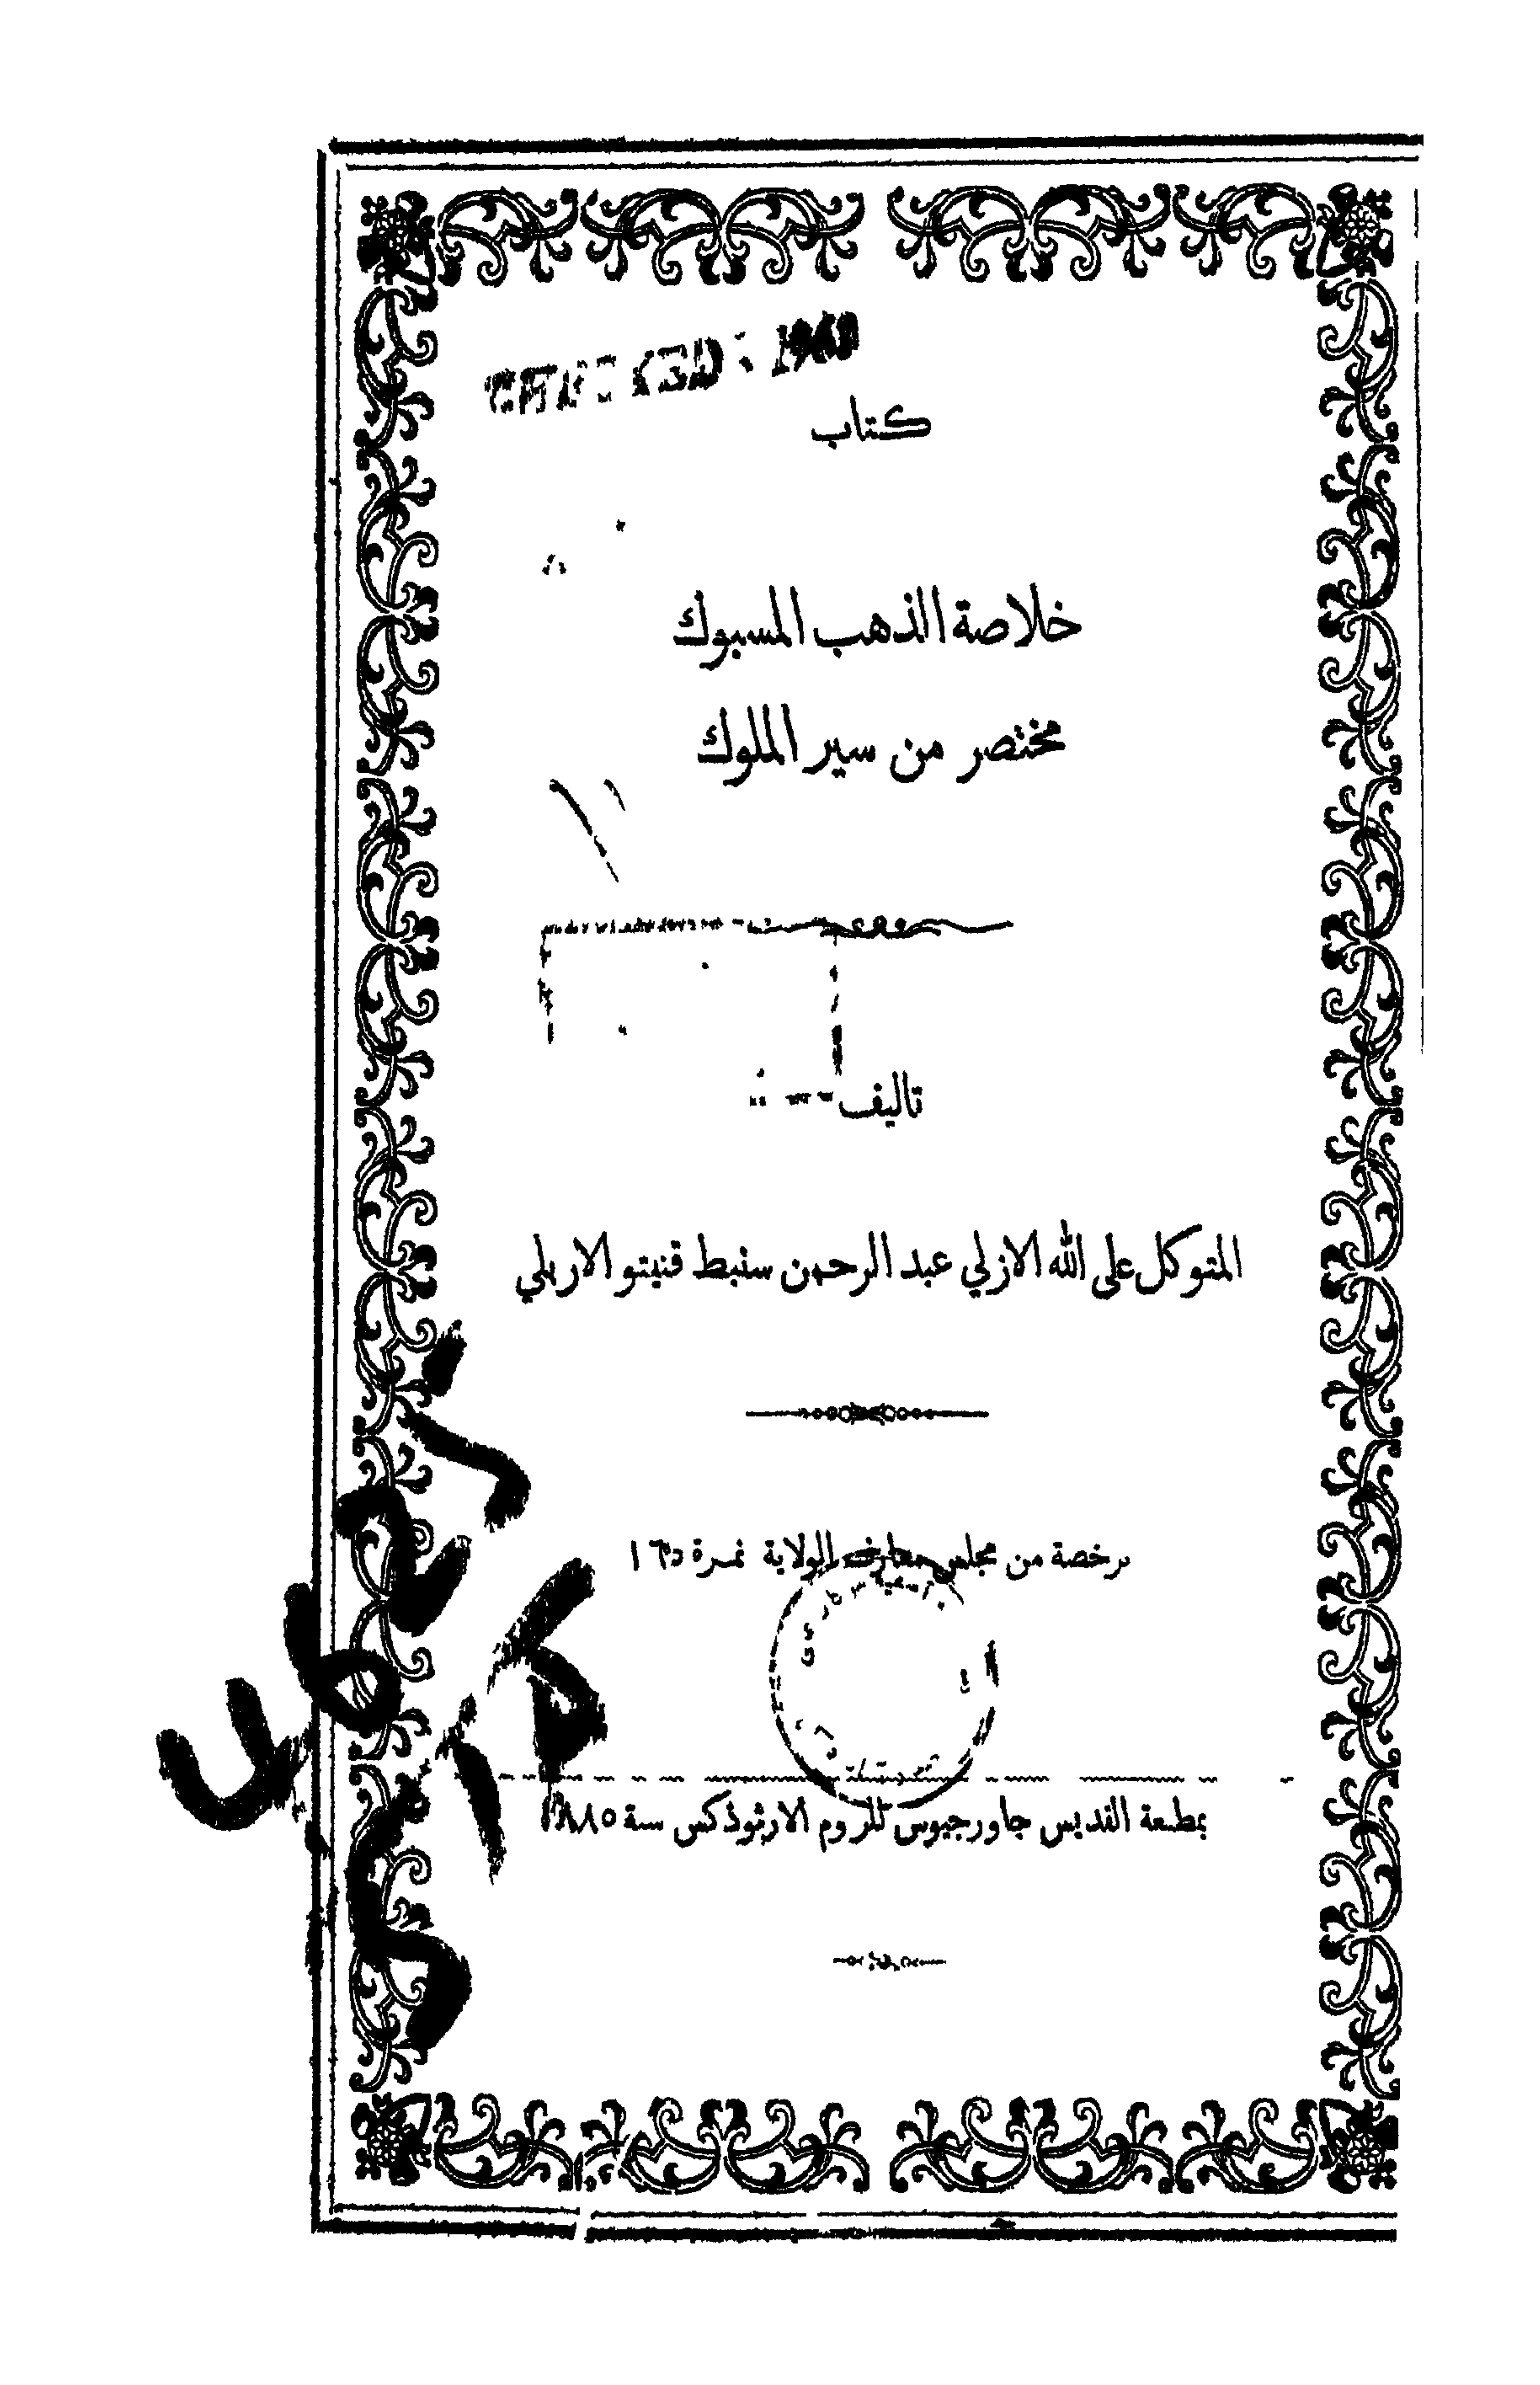 كتاب
خلاصة الذهب المسبوك
مختصر من سير الملوك
تاليف
المتوكل على الله الازلي عبد الرحمن سنبط قنيتو الاربلي
برخصة من مجلس معارف الولاية نمرة ١٦٥
بمطبعة القديس جاورجيوس للروم الارثوذكس سنة ١٨٨٥